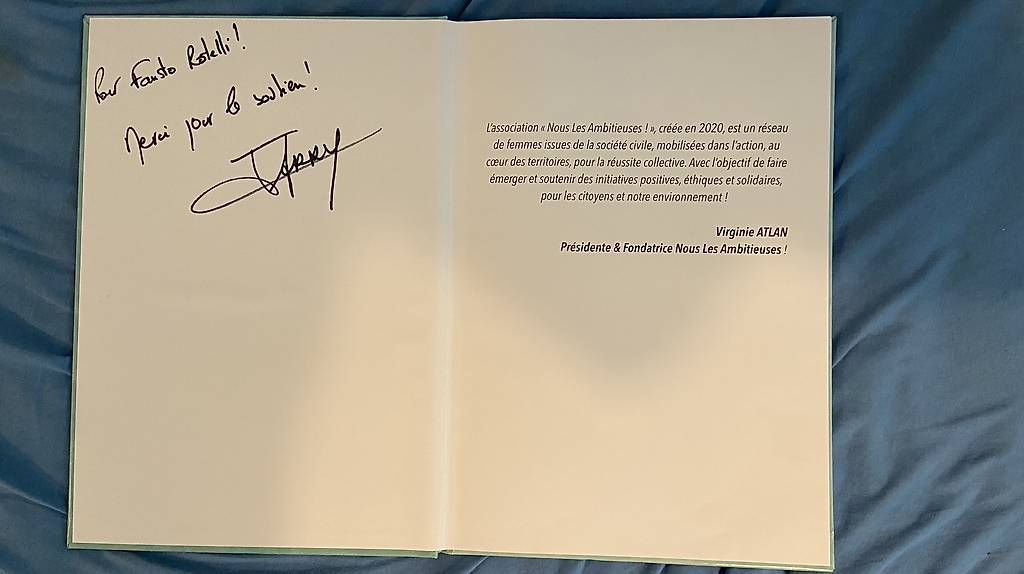 Pour Fausto Rotelli !
Merci pour le soutien !
JARRY
L'association « Nous Les Ambitieuses ! », créée en 2020, est un réseau
de femmes issues de la société civile, mobilisées dans l'action, au
cœur des territoires, pour la réussite collective. Avec l'objectif de faire
émerger et soutenir des initiatives positives, éthiques et solidaires,
pour les citoyens et notre environnement !
Virginie ATLAN
Présidente & Fondatrice Nous Les Ambitieuses !